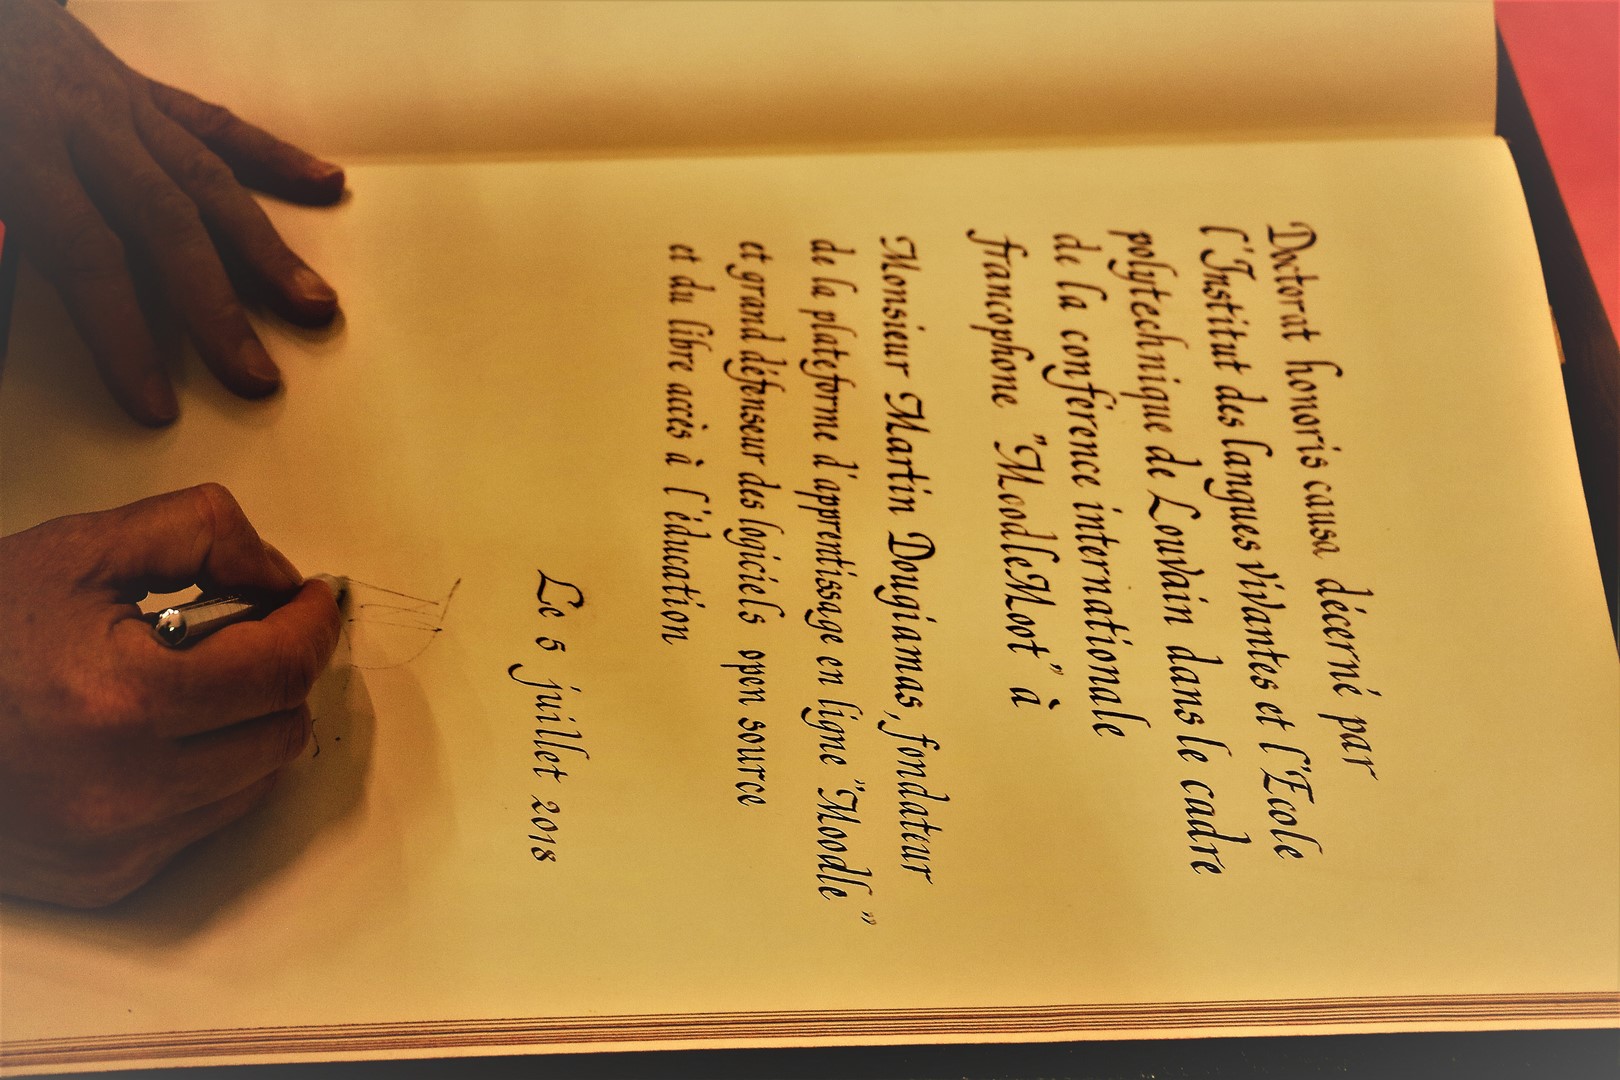 Doctorat honoris causa décerné par
l'Institut des langues vivantes et l'Ecole
polytechnique de Louvain dans le cadre
de la conférence internationale
francophone "MoodleMoot" à
Monsieur Martin Dougiamas, fondateur
de la plateforme d'apprentissage en ligne "Moodle"
et grand défenseur des logiciels open source
et du libre accès à l'éducation
Le 5 juillet 2018